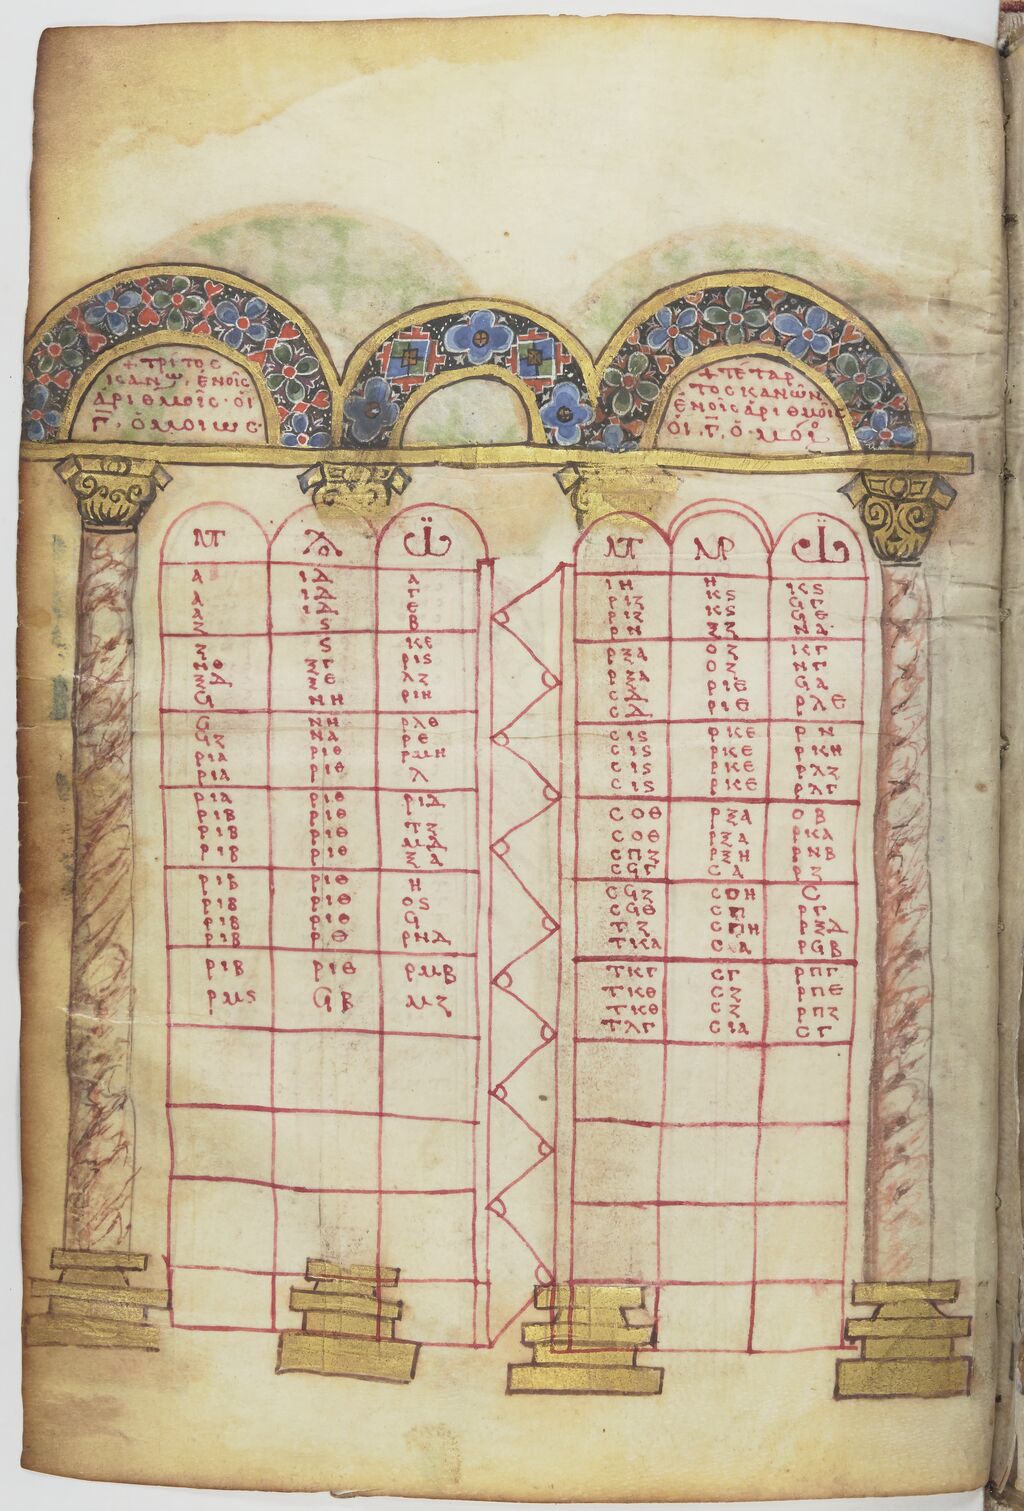 + ΤΡΙΤΟϹ
ΚΑΝΩ, ΕΝ ΟΙϹ
ΑΡΙΘΜΟΙϹ· ΟΙ
Γ̅, ΟΜΟΙΩϹ·
+ ΤΕΤΑΡ
ΤΟϹ ΚΑΝΩΝ
ΕΝ ΟΙϹ ΑΡΙΘΜΟΙϹ
ΟΙ, Γ̅, ΟΜΟΙ
ΜΤ ΛΟ ΙΩ
Α ΙΔ Α
Α ΙΔ Γ
Α ΙΔ Ε
Ζ Ϛ Β
Ζ Ϛ ΚΕ
ΝΘ ΞΓ ΡΙϚ
ΞΔ ΞΕ ΛΖ
Ϟ ΝΗ ΡΙΗ
Ϟ ΝΗ ΡΛΘ
ϞΖ ΝΑ ΡΕ
ΡΙΑ ΡΙΘ ΡΜΗ
ΡΙΑ ΡΙΘ Λ
ΡΙΑ ΡΙΘ ΡΙΔ
ΡΙΒ ΡΙΘ ΤΖ
ΡΙΒ ΡΙΘ ΜΔ
ΡΙΒ ΡΙΘ ΞΑ
ΡΙΒ ΡΙΘ Η
ΡΙΒ ΡΙΘ ΟϚ
ΡΙΒ ΡΙΘ Ϟ
ΡΙΒ ΡΙΘ ΡΝΔ
ΡΙΒ ΡΙΘ ΡΜΒ
ΡΜϚ ϞΒ ΜΖ
ΜΤ ΜΡ ΙΩ
ΙΗ Η ΚϚ
ΡΙΖ ΚϚ ϞΓ
ΡΙΖ ΚϚ ϞΕ
ΡΝ ΞΖ ΝΑ
ΡΞΑ ΟΖ ΚΓ
ΡΞΑ ΟΖ ΝΓ
ϹΔ ΡΙΕ ϞΑ
ϹΔ ΡΙΕ ΡΛΕ
ϹΙϚ ΡΚΕ ΡΝ
ϹΙϚ ΡΚΕ ΡΚΗ
ϹΙϚ ΡΚΕ ΡΛΖ
ϹΙϚ ΡΚΕ ΡΛΓ
ϹΟΘ ΡΞΑ ΟΒ
ϹΟΘ ΡΞΑ ΡΚΑ
ϹΠΖ ΡΞΗ ΡΝΒ
ϹϞΓ ϹΑ ΡΖ
ϹϞΖ ϹΟΗ Ϲ
ϹϞΘ ϹΠ ΡΓ
ΤΖ ϹΠΗ ΡΞΔ
ΤΚΑ ϹΑ ΡϞΒ
ΤΚΓ ϹΓ ΡΠΓ
ΤΚΘ ϹΖ ΡΠΕ
ΤΚΘ ϹΖ ΡΠΖ
ΤΛΓ ϹΙΑ ϹΓ